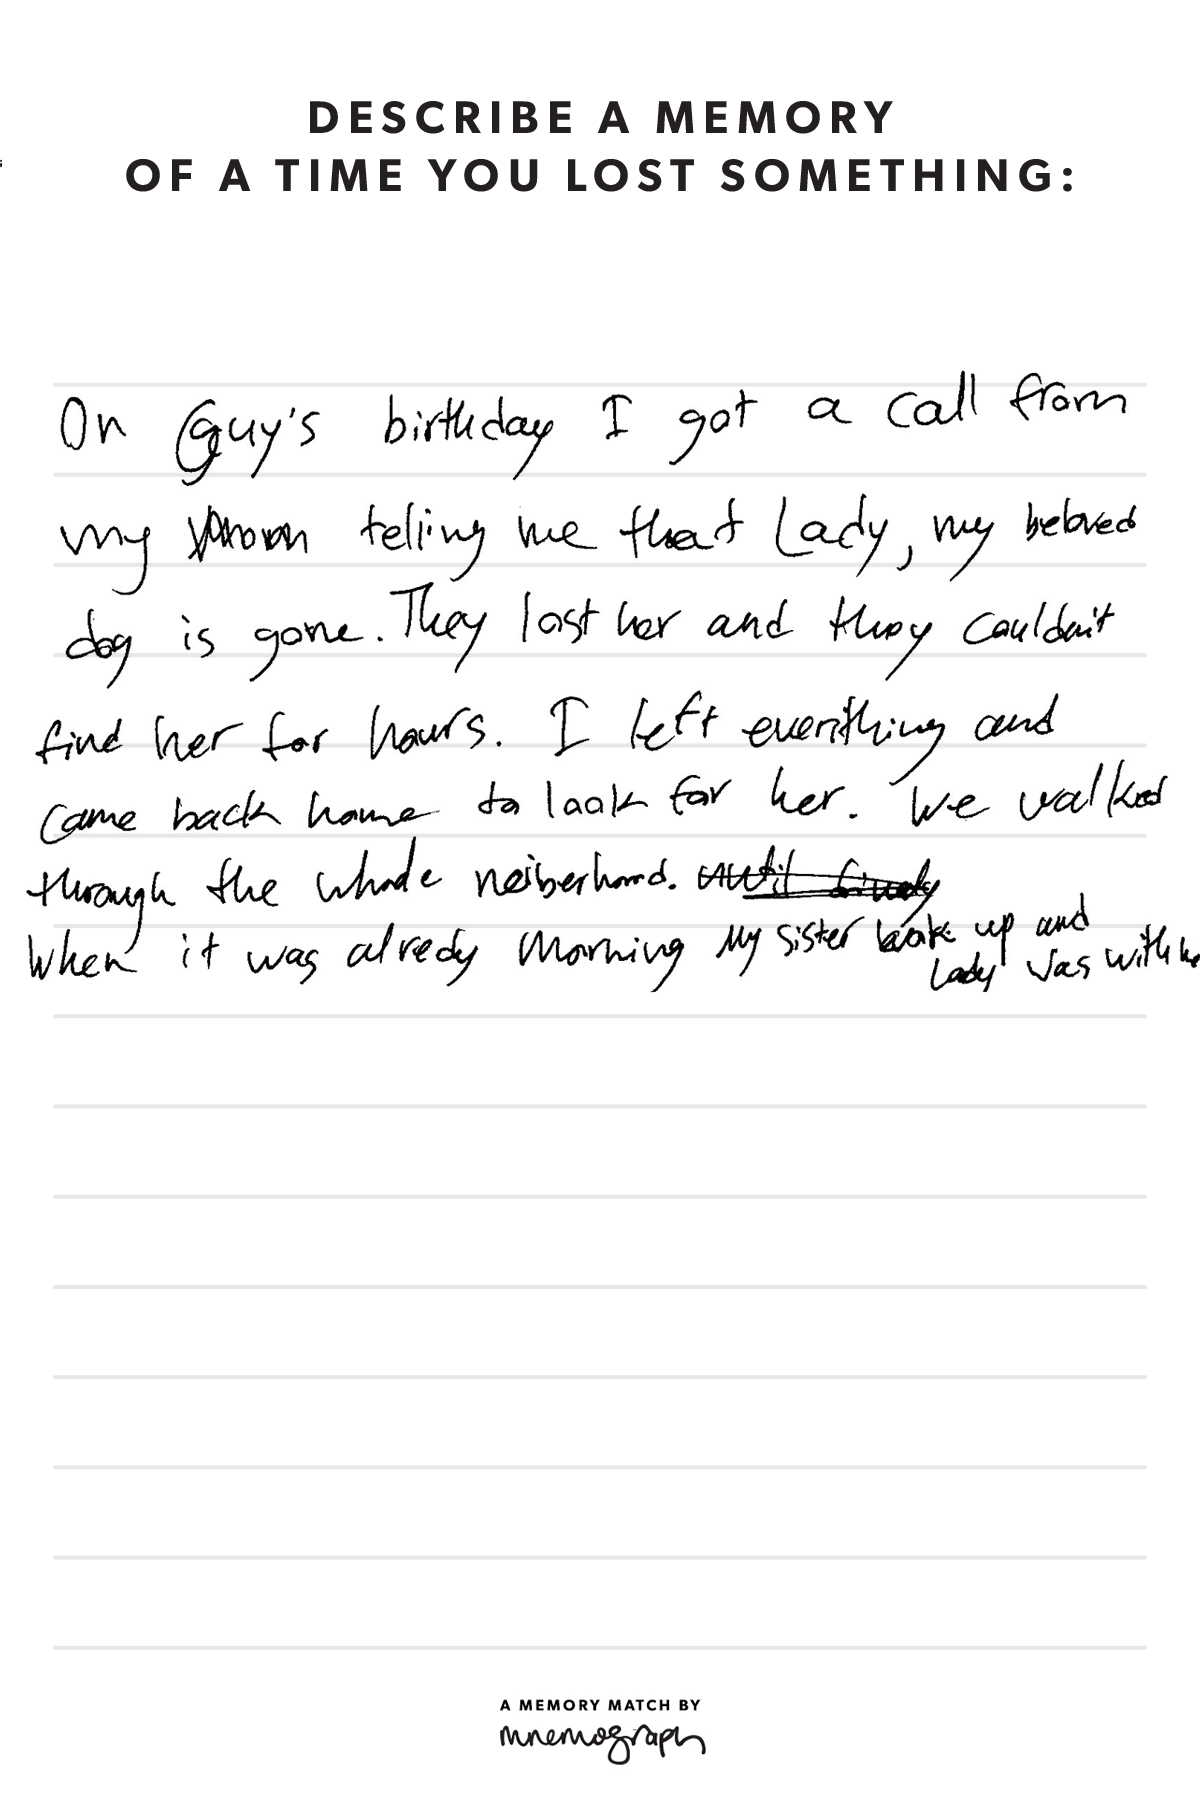 DESCRIBE A MEMORY
OF A TIME YOU LOST SOMETHING:
On Guy's birthday I got a call from
my mom telling me that Lady, my beloved
dog is gone. They lost her and they couldn't
find her for hours. I left everithing and
came back home to look for her. We walked
through the whole neiberhood. until finely
When it was alredy morning My sister woke up and
Lady was with he
A MEMORY MATCH BY
mnemograph